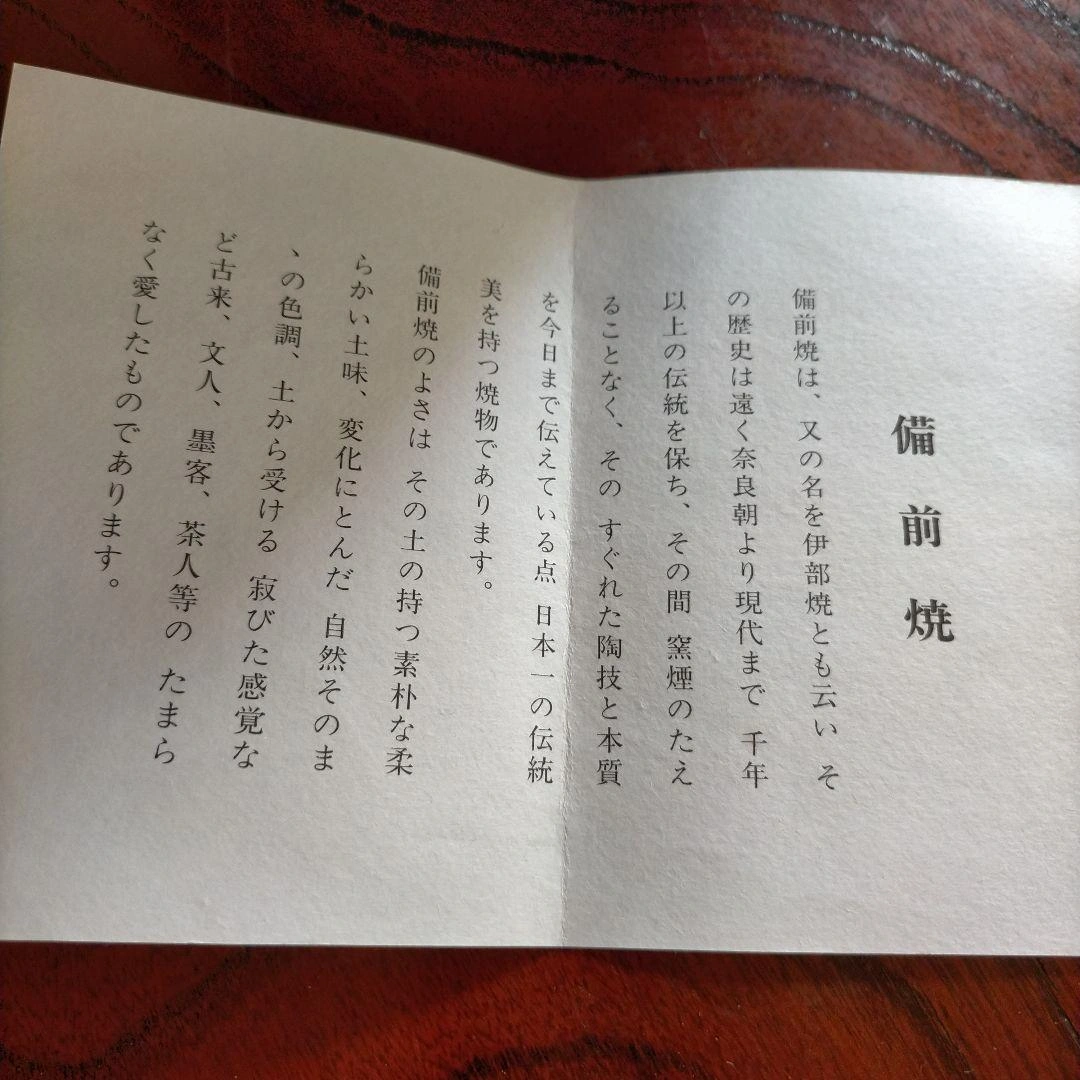 備前焼
備前焼は、又の名を伊部焼とも云い そ
の歴史は遠く奈良朝より現代まで 千年
以上の伝統を保ち、その間 窯煙のたえ
ることなく、その すぐれた陶技と本質
を今日まで伝えている点 日本一の伝統
美を持つ焼物であります。
備前焼のよさは その土の持つ素朴な柔
らかい土味、変化にとんだ 自然そのま
ヽの色調、土から受ける 寂びた感覚な
ど古来、文人、墨客、茶人等の たまら
なく愛したものであります。